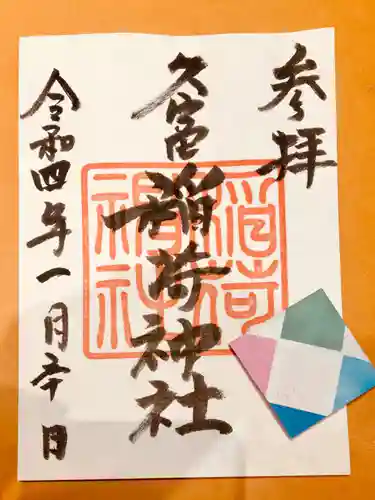 参拝
久富稲荷神社
令和四年一月 日
稲荷
神社